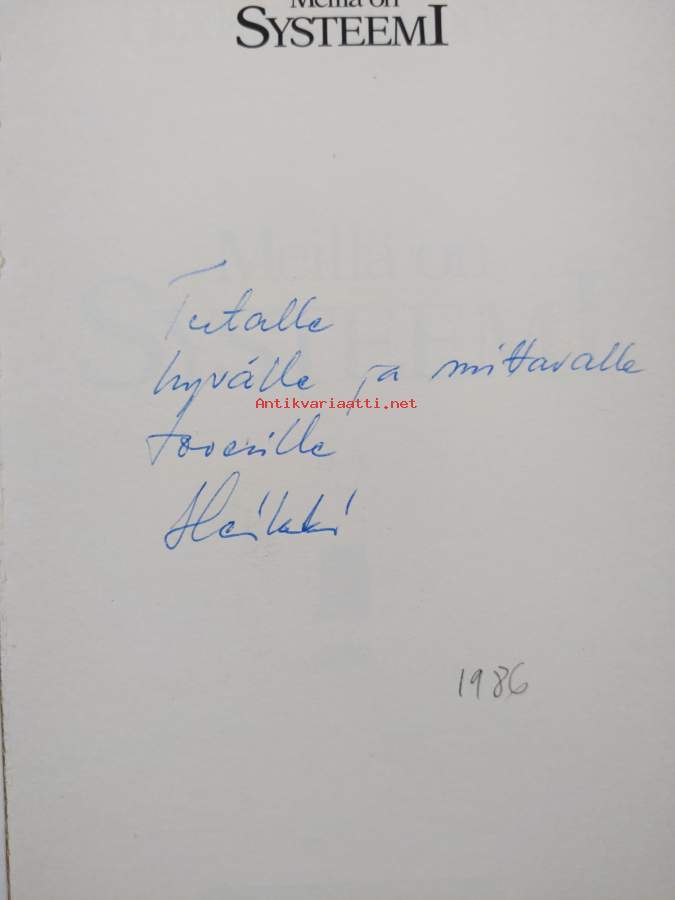 Meillä on
SYSTEEMI
Tutalle
hyvälle ja mittavalle
Antikvariaatti.net
toverille
Heikki
1986